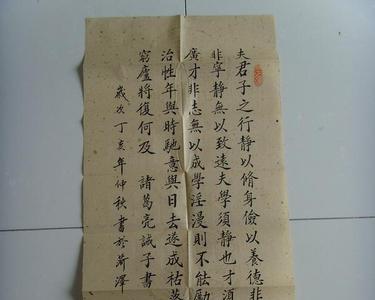 夫君子之行静以脩身儉以養德非
非寧静無以致遠夫學須静也才湏
廣才非志無以成學淫漫則不能勵
治性年與時馳意與日去遂成枯落
窮廬將復何及 諸葛亮誡子書
歲次丁亥年仲秋書於菏澤